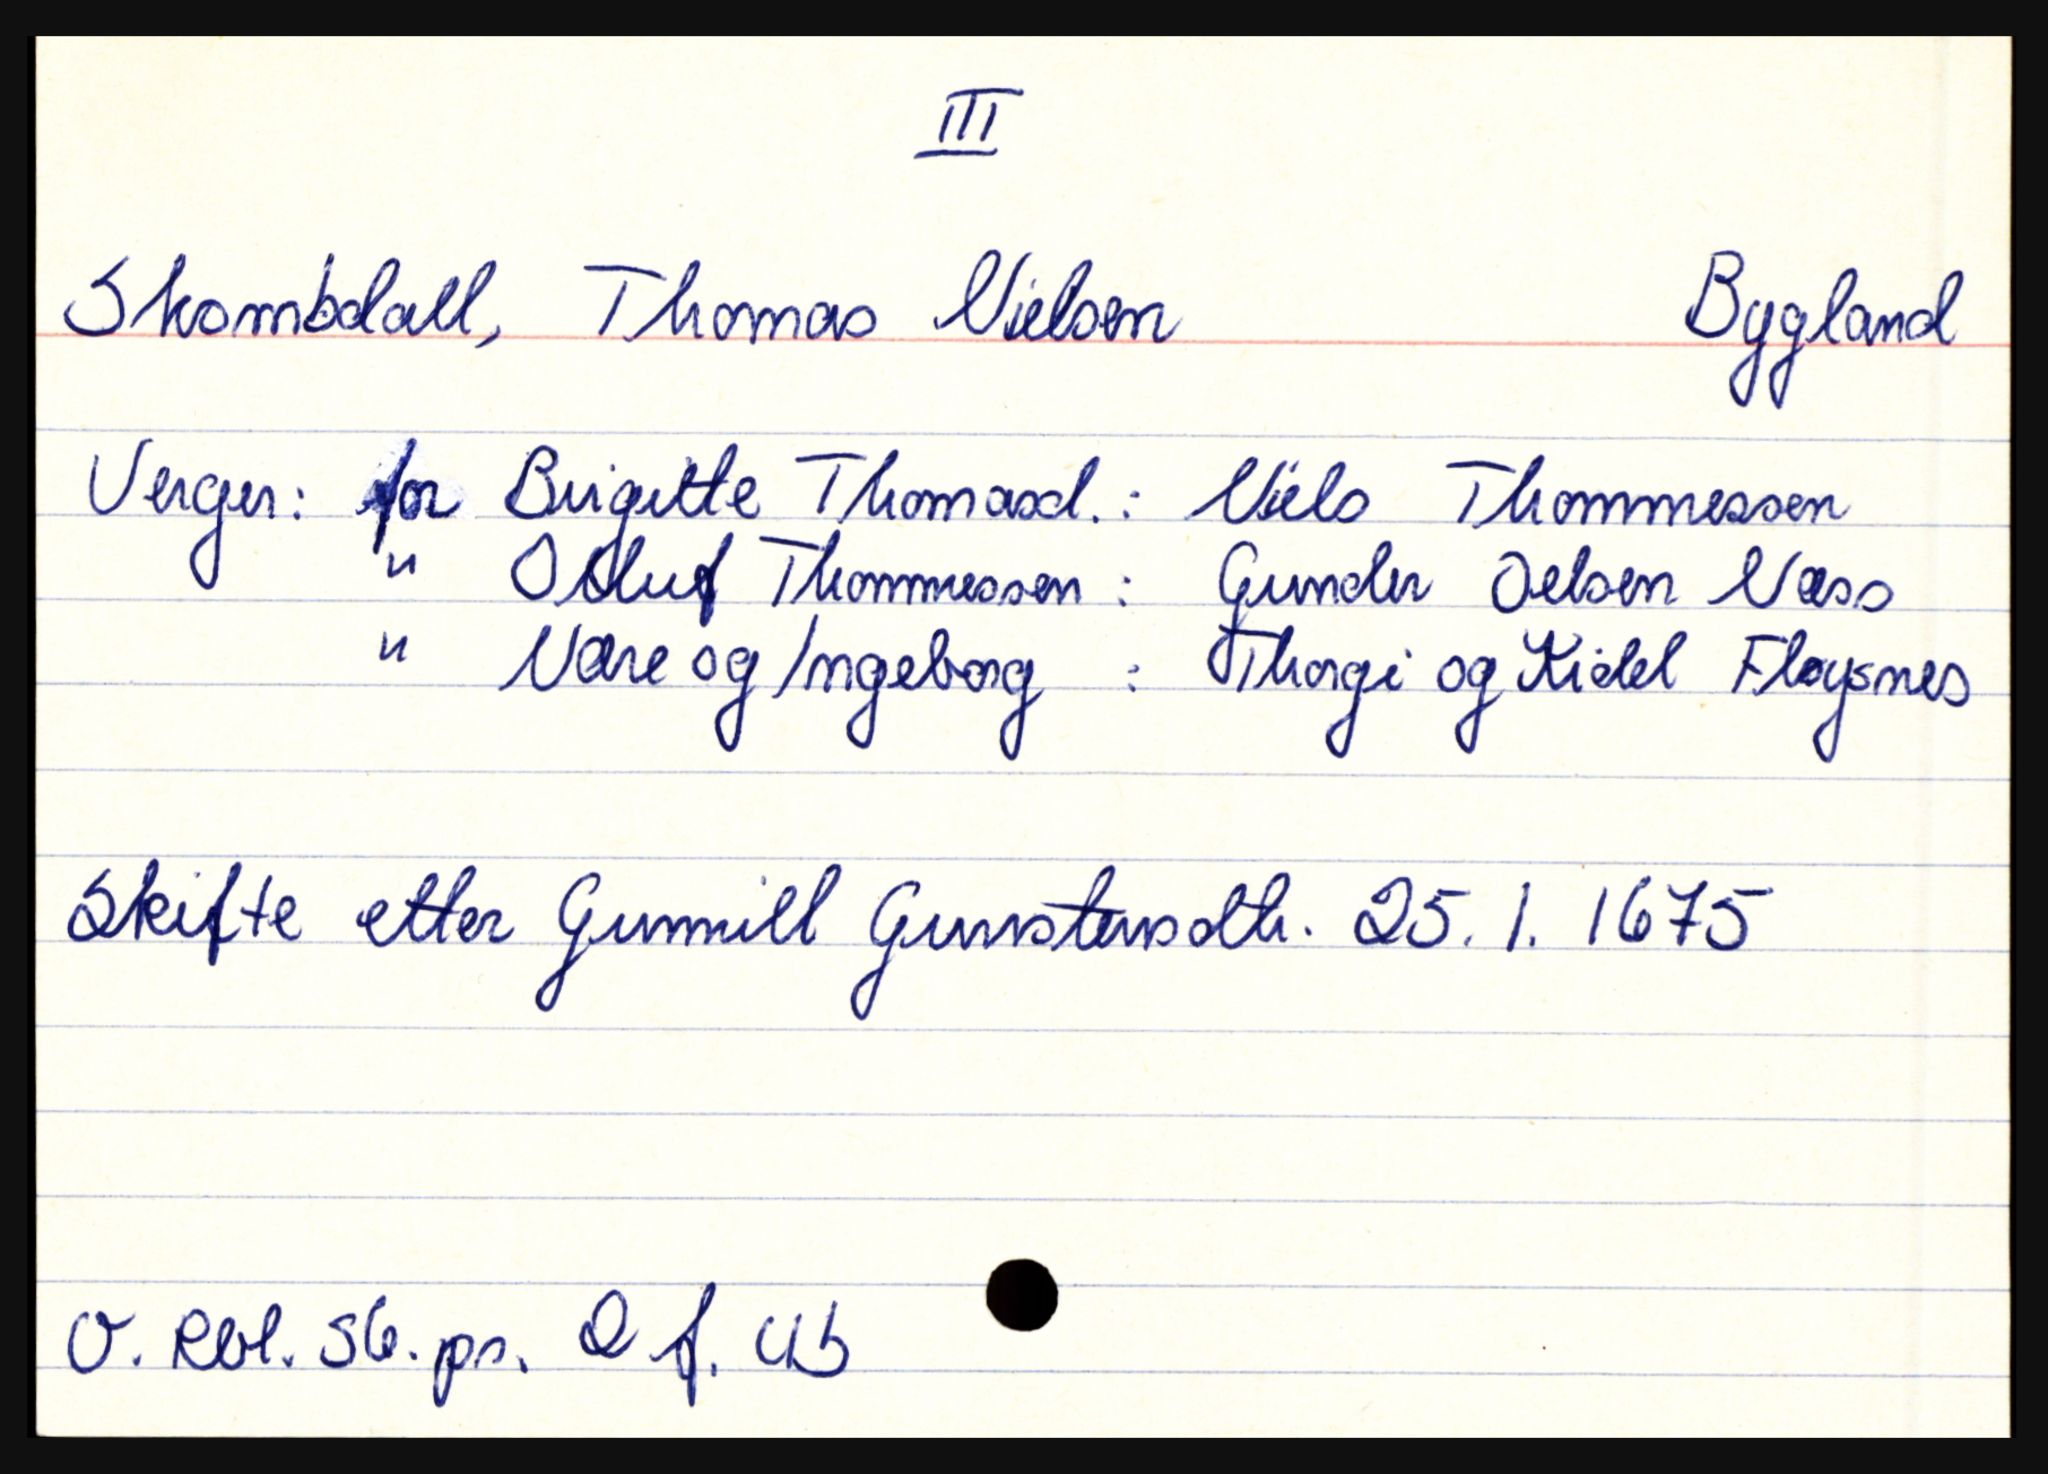 III
Skombdall, Thomas Nielsen Bygland
Verger: for Brigitte Thomasd.: Niels Thommessen
" Osluf Thommessen: Gunder Oelsen Næss
" Nære og Ingeborg : Thorgi og Kidel Fløysnes
Skifte etter Gunnill Gunstensdtr. 25. 1. 1675
O. Rbl. Sk. pr. 2 f. 4b